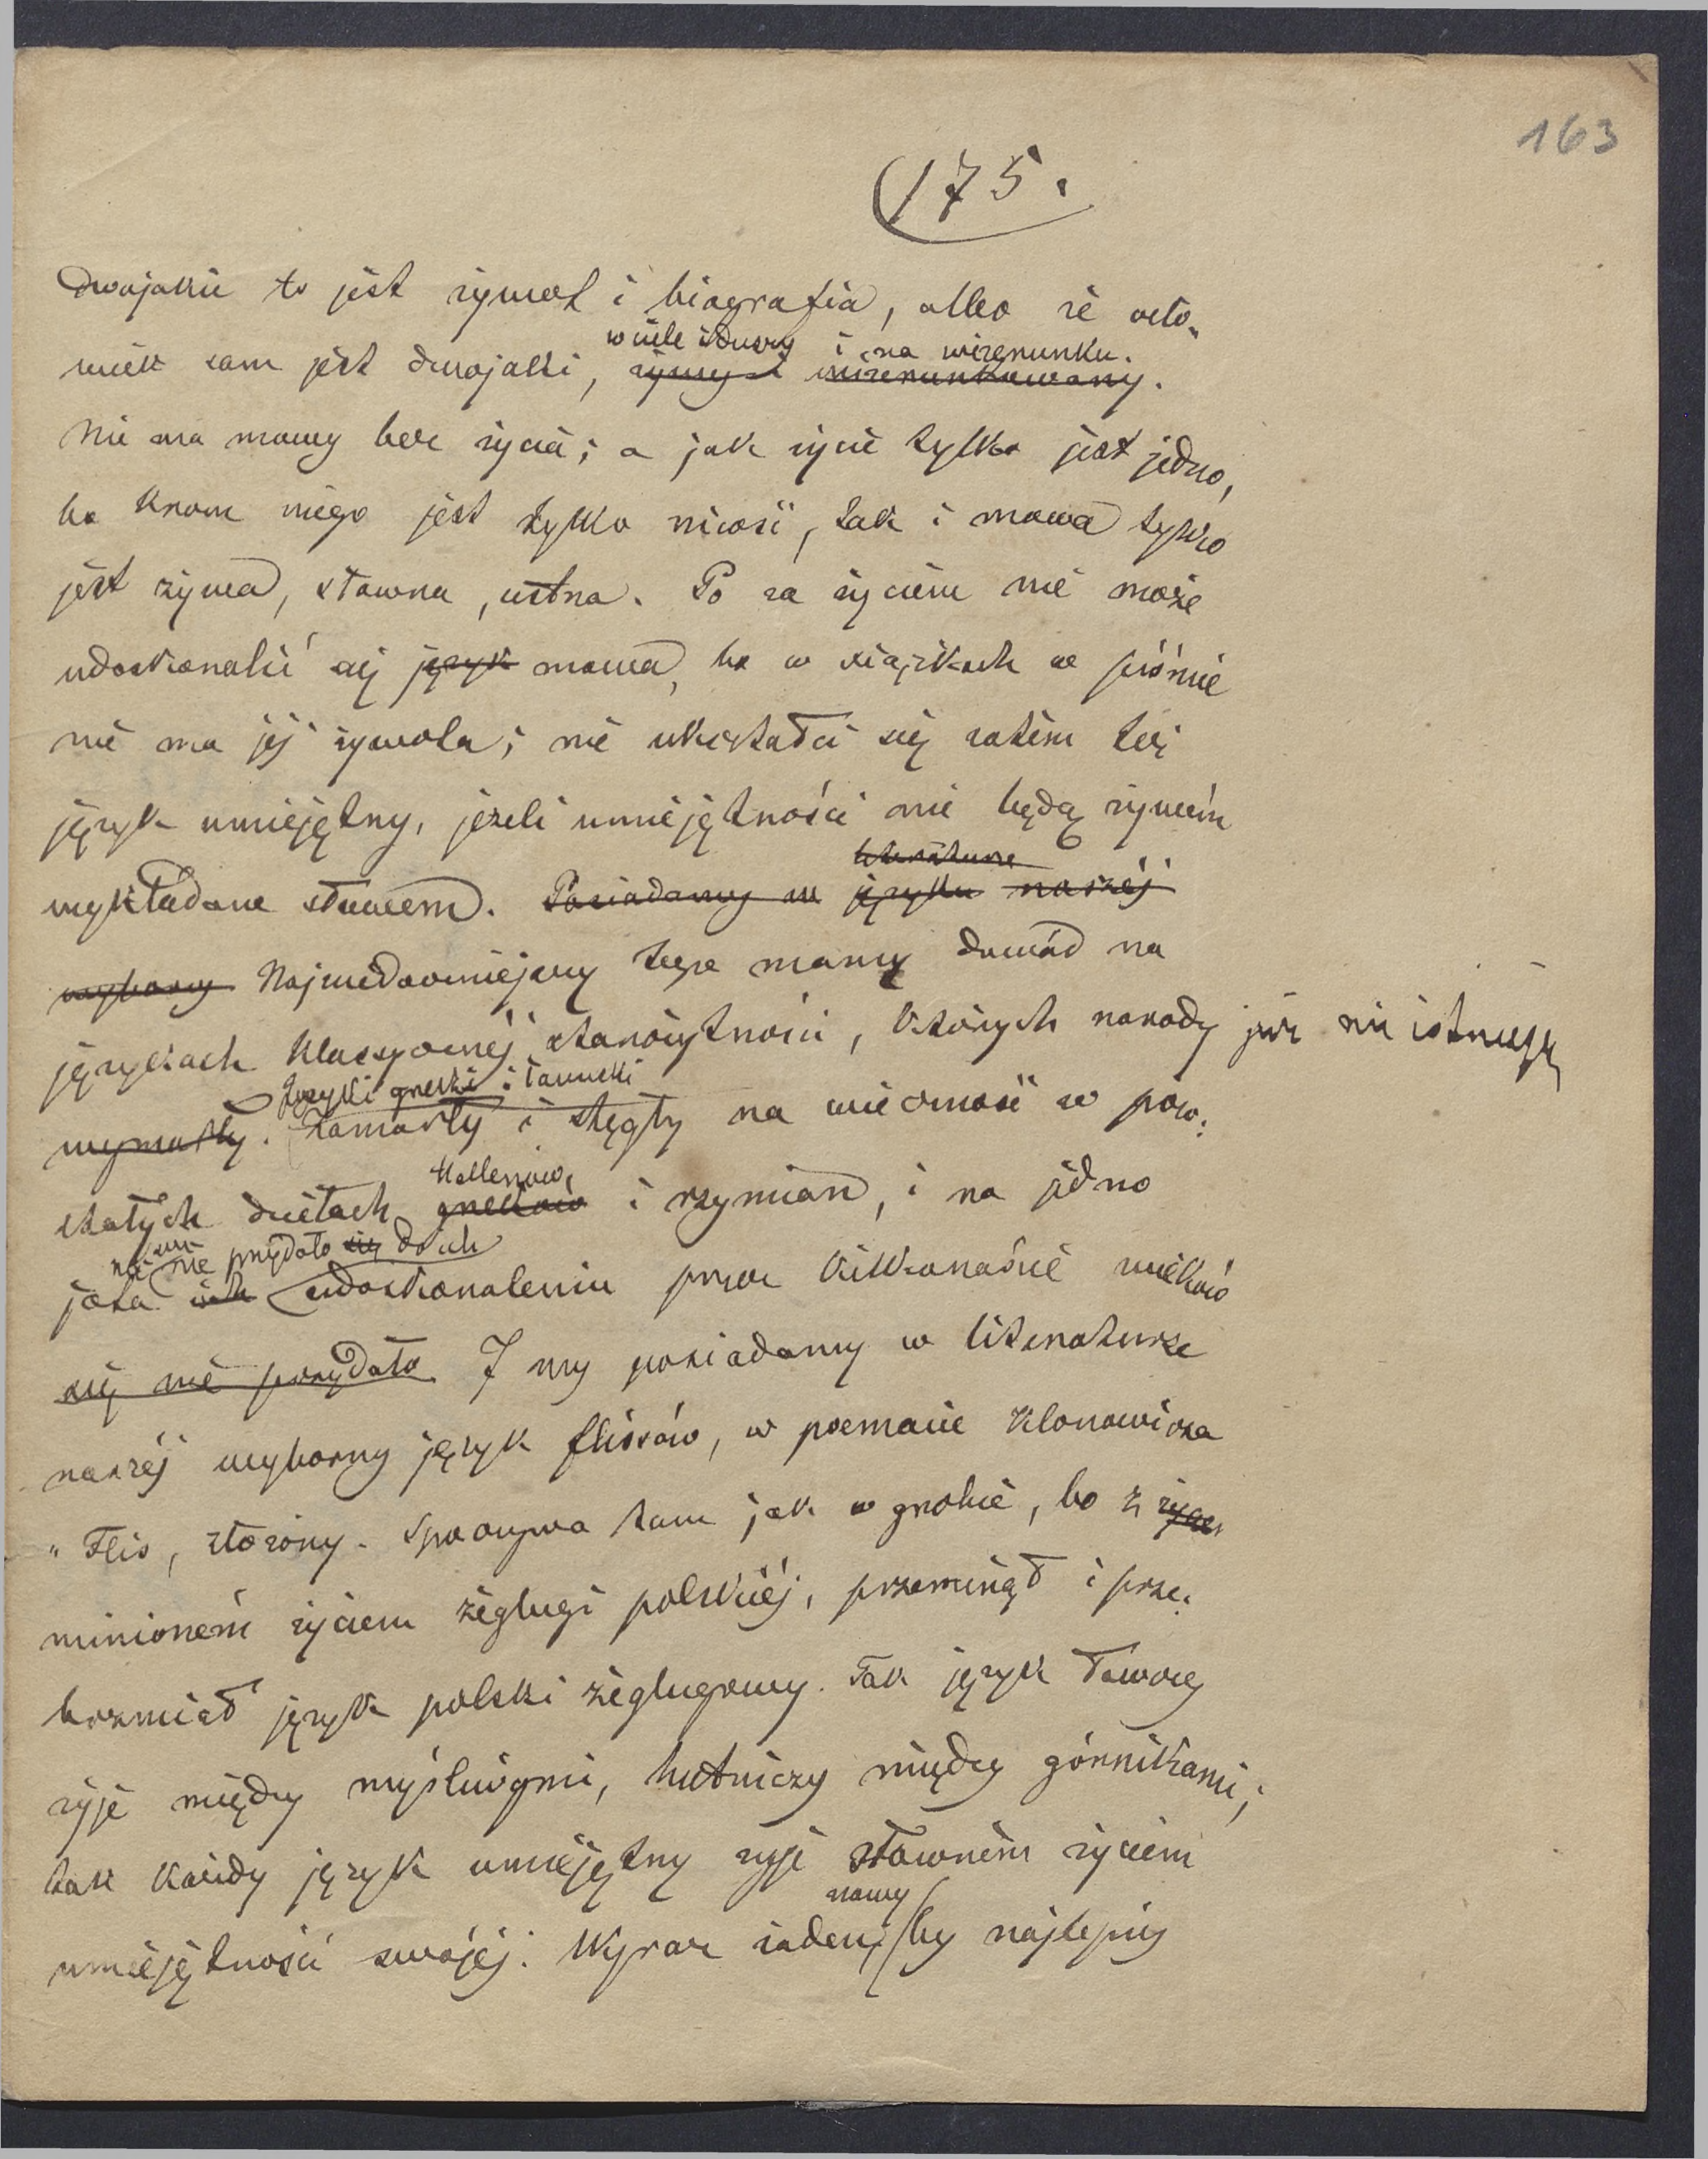 163
175.
dwojakie to jest żywot i biografia, albo że czło-
w ciele żdwory i na wizerunku.
wiek sam jest dwojaki, żywy i wizerunkowany.
Nie ma mowy bez życia; a jak życie tylko jest jedno,
bo krom niego jest tylko nicość, tak i mowa tylko
jest żywa, słowna, ustna. Po za życiem nie może
udoskonalić się język mowa, bo w książkach w piśmie
nie ma jej żywota; nie ukształci się zatem też
język umiejętny, jeżeli umiejętności nie będą żywém
literaturze
wykładane słowem. Posiadamy w języku naszéj
wyborny Najwidoczniejszy tego mamy dowód na
językach klassycznéj starożytności, których narody już nie istnieją
Języki grecki i łaciński
wymarły. Zamarły i stęgły na wieczność w pow-
Hellenów,
stałych dziełach greków i rzymian, i na jedno
nie przydało się do ich
jota ich udoskonaleniu przez kilkanaście wieków
się nie przydało. I my posiadamy w literaturze
naszéj wyborny język flisów, w poemacie Klonowicza
"Flis, złożony. Spoczywa tam jak w grobie, bo z życ
minioném życiem żeglugi polskiéj, przeminął i prze-
brzmiał język polski żeglugowy. Tak język łowczy
żyje między myśliwymi, hutniczy między górnikami;
tak każdy język umiejętny żyje słowném życiem
nowy
umiejętności swojéj. Wyraz żaden, by najlepiéj